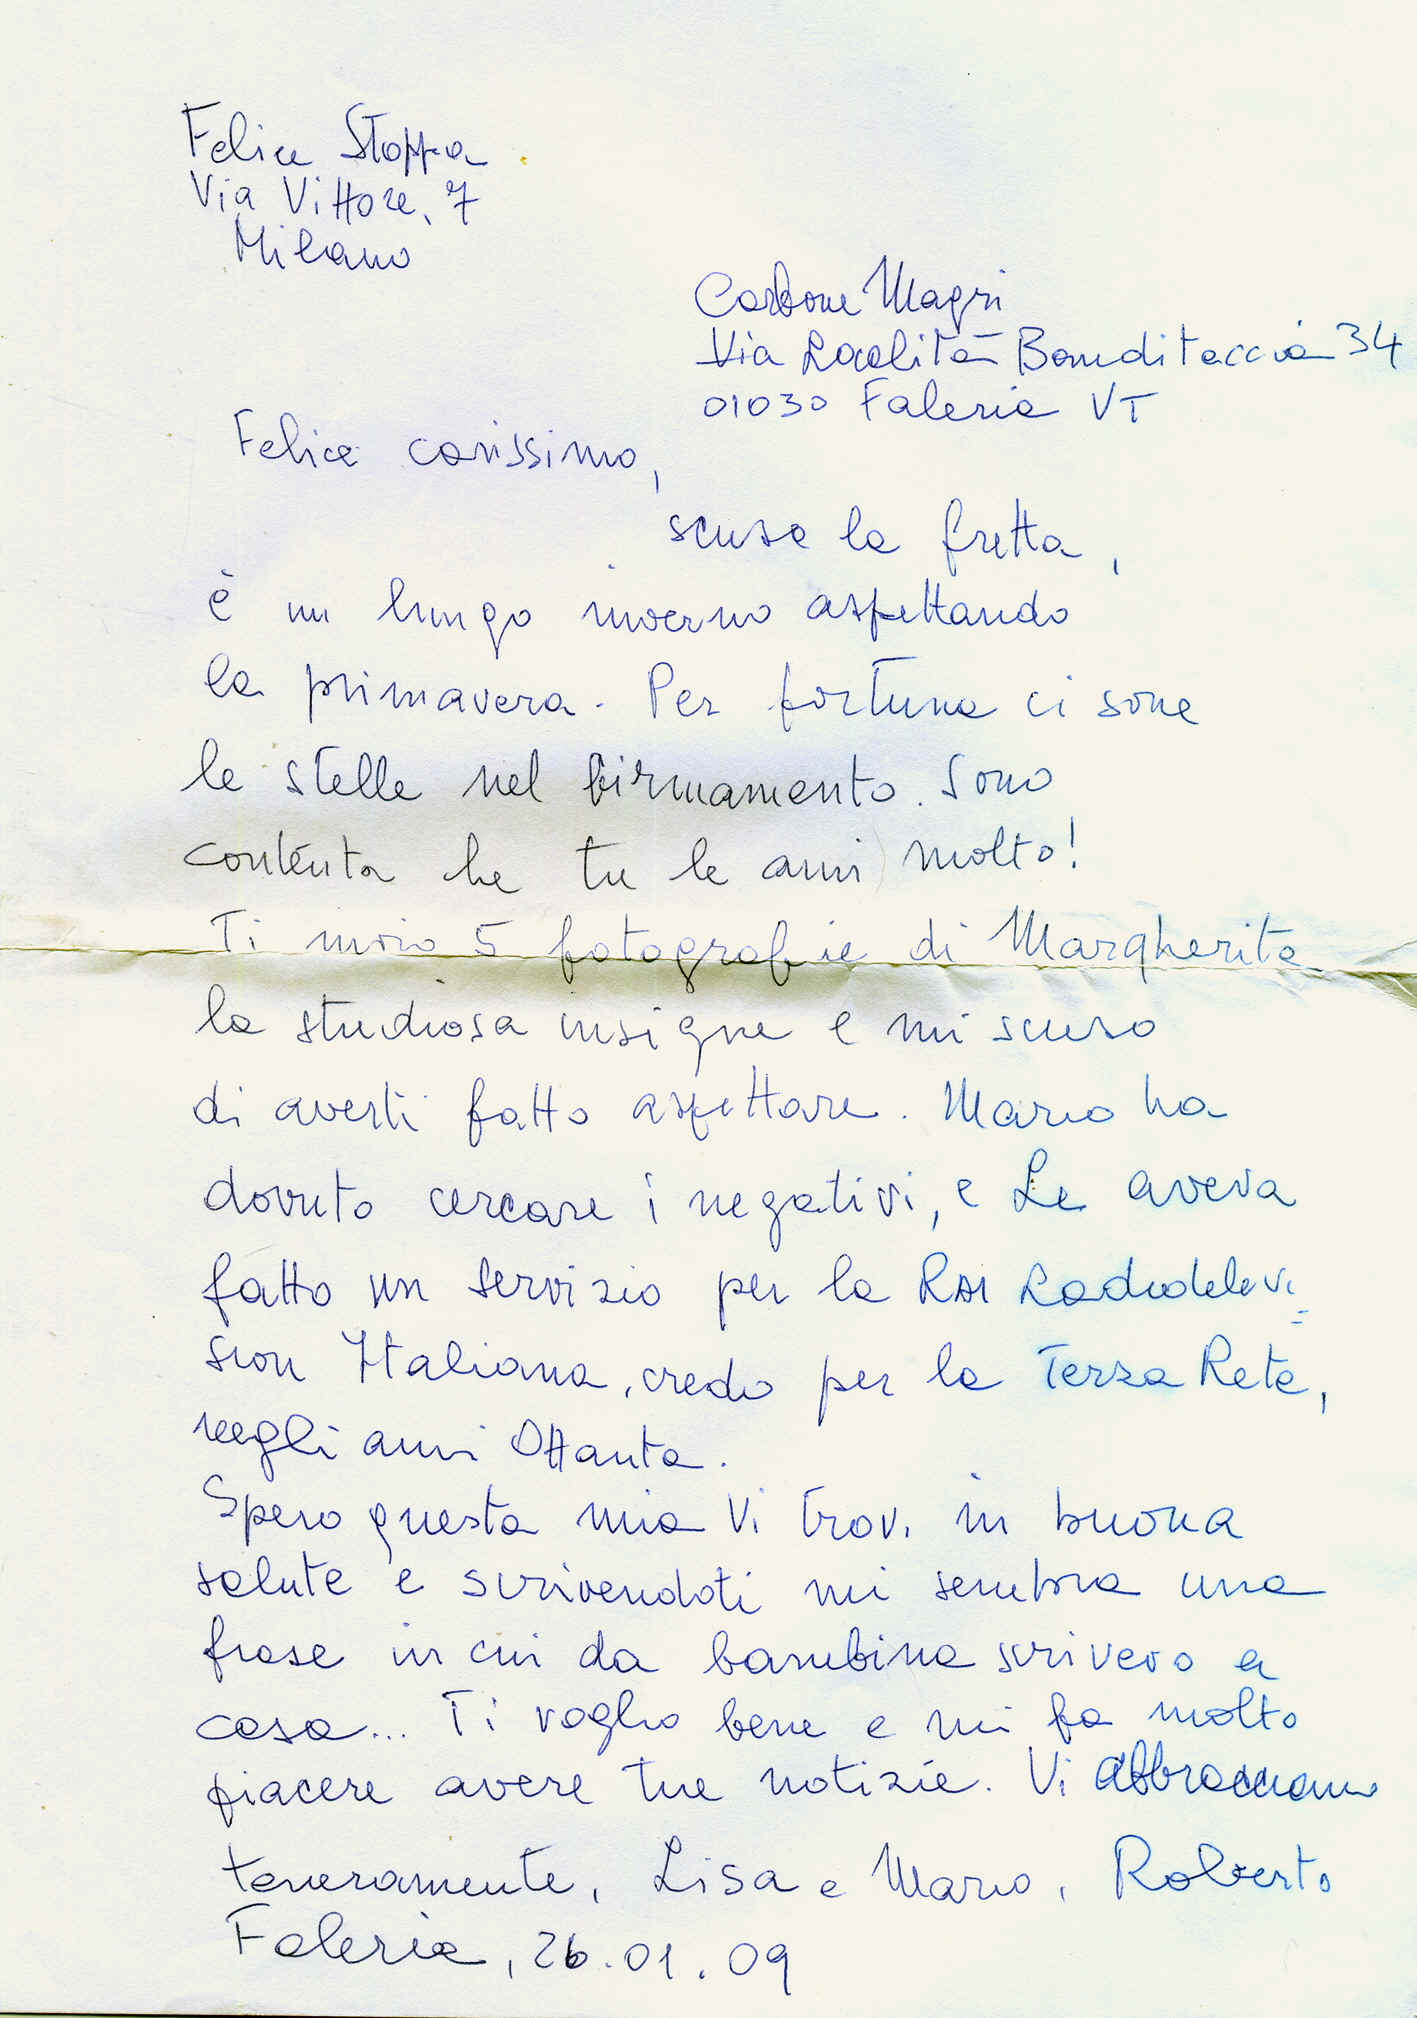 Felice Stoppa
Via Vittore, 7
Milano
Carbone Magri
Via Località Banditaccia 34
01030 Faleria VT
Felice carissimo,
scusa la fretta,
è un lungo inverno aspettando
la primavera. Per fortuna ci sono
le stelle nel firmamento. Sono
contenta che tu le ami molto!
Ti invio 5 fotografie di Margherita
la studiosa insigne e mi scuso
di averti fatto aspettare. Mario ha
dovuto cercare i negativi, e Le aveva
fatto un servizio per la RAI Radiotelevi=
sion Italiana, credo per la Terza Rete,
negli anni Ottanta.
Spero questa mia Vi trovi in buona
salute e scrivendoti mi sembra una
frase in cui da bambina scrivevo a
casa... Ti voglio bene e mi fa molto
piacere avere tue notizie. Vi abbracciamo
teneramente, Lisa e Mario, Roberto
Faleria, 26.01.09